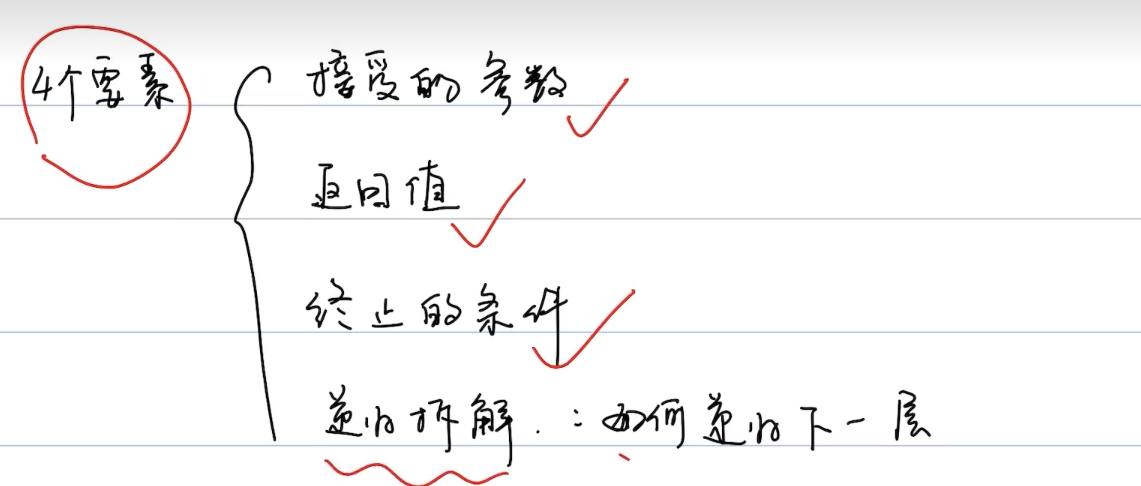 4个要素
接受的参数
返回值
终止的条件
递归拆解.：如何递归下一层